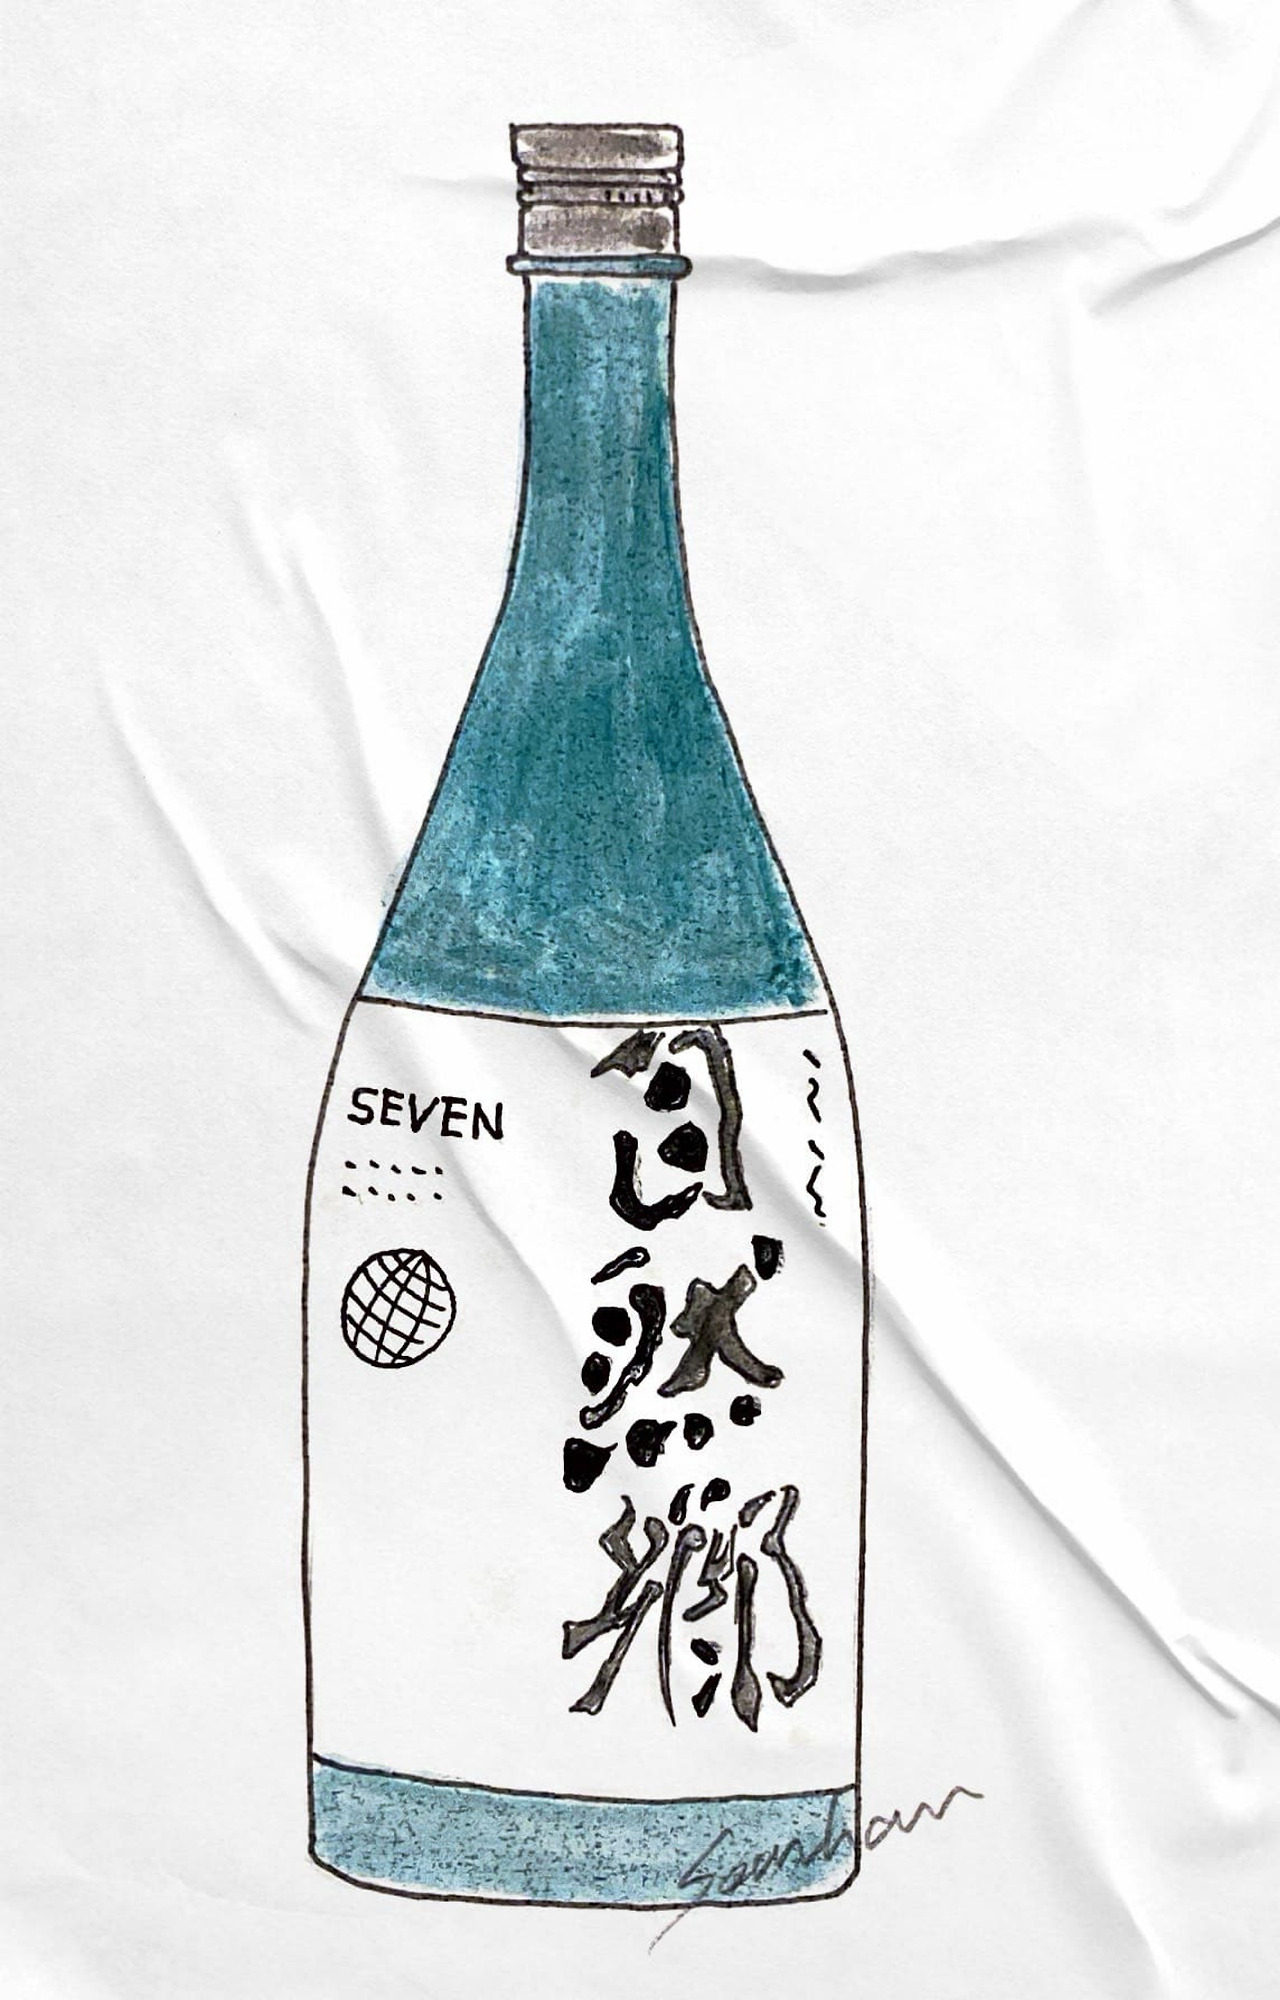 SEVEN
自然郷